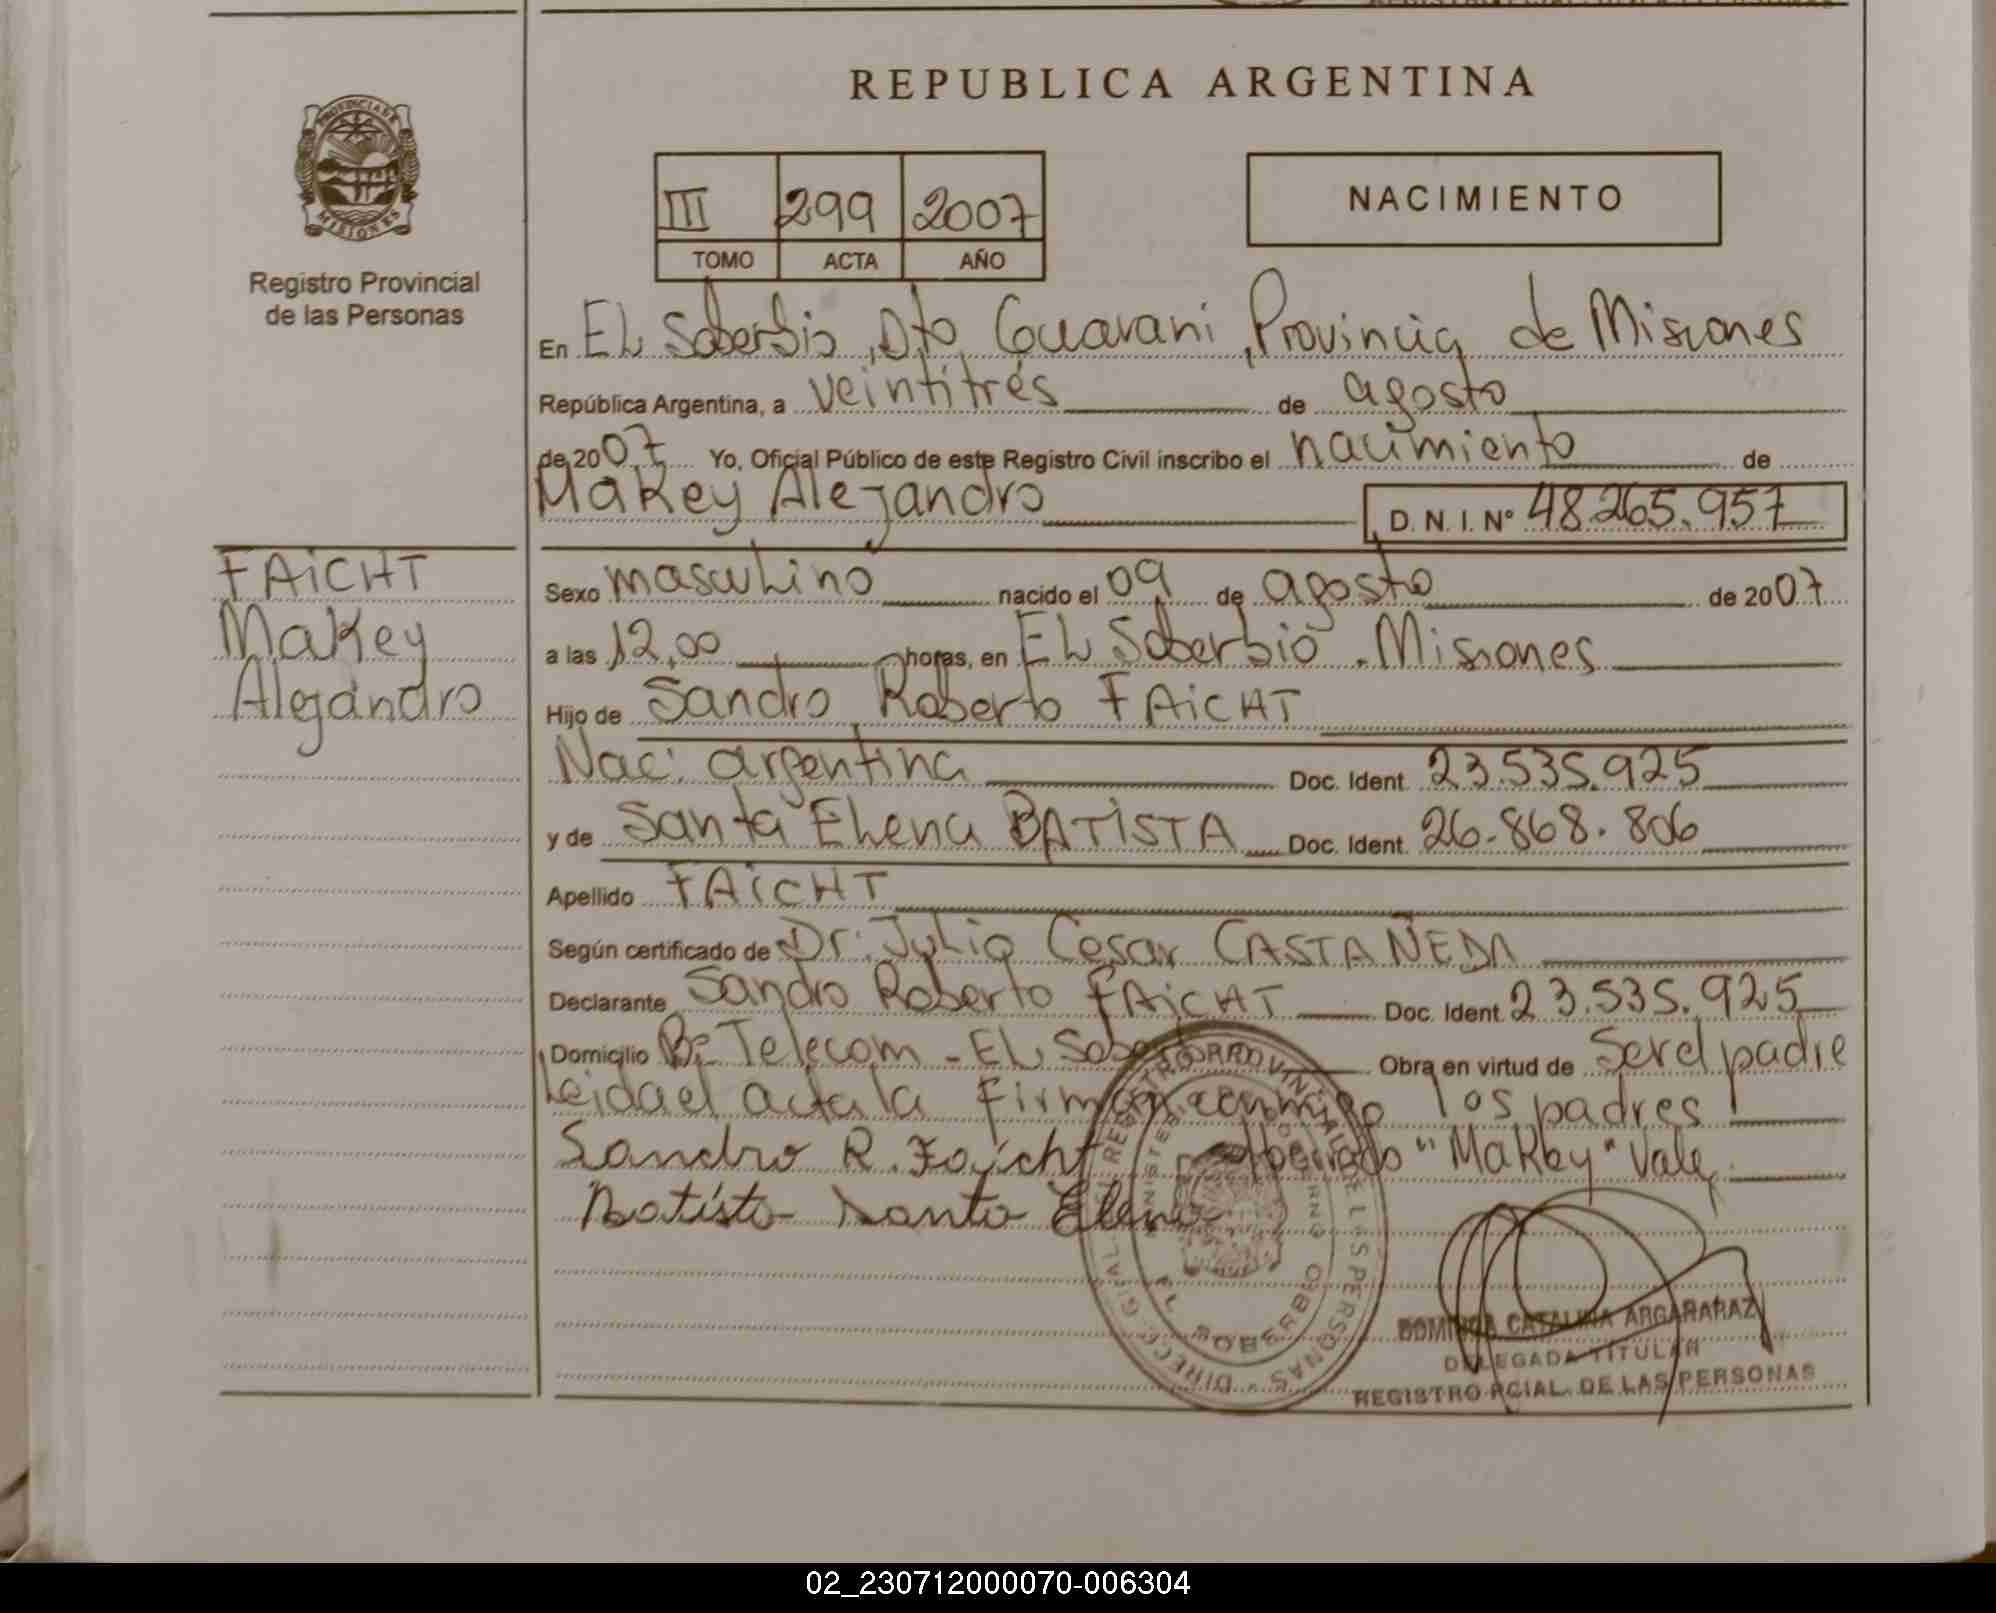 REPUBLICA ARGENTINA
PROVINCIA DE MISIONES
Registro Provincial
de las Personas
III 299 2007
TOMO ACTA AÑO
NACIMIENTO
En EL Soberbio, Dto Guarani, Provincia de Misiones
República Argentina, a veintitrés de agosto
de 2007 Yo, Oficial Público de este Registro Civil inscribo el nacimiento de
Makey Alejandro
D. N. I. Nº 48.265.957
FAiCHT
Makey
Alejandro
Sexo masculino nacido el 09 de agosto de 2007
a las 12,00 horas, en EL Soberbio . Misiones
Hijo de Sandro Roberto FAiCHT
Nac. argentina Doc. Ident. 23.535.925
y de Santa Elena BATiSTA Doc. Ident. 26.868.806
Apellido FAiCHT
Según certificado de Dr. Julio Cesar CASTAÑEDA
Declarante Sandro Roberto FAiCHT Doc. Ident. 23.535.925
Domicilio Bº Telecom - EL Soberbio Obra en virtud de Ser el padre
Leida el acta la Firman conmigo los padres
Sandro R. Faicht "Makey" Vale
Batista Santa Elena
DIRECC. GRAL. REGISTRO PROVINCIAL DE LAS PERSONAS
EL SOBERBIO
DOMINGA CATALINA ARGAÑARAZ
DELEGADA TITULAR
REGISTRO PCIAL. DE LAS PERSONAS
02_230712000070-006304